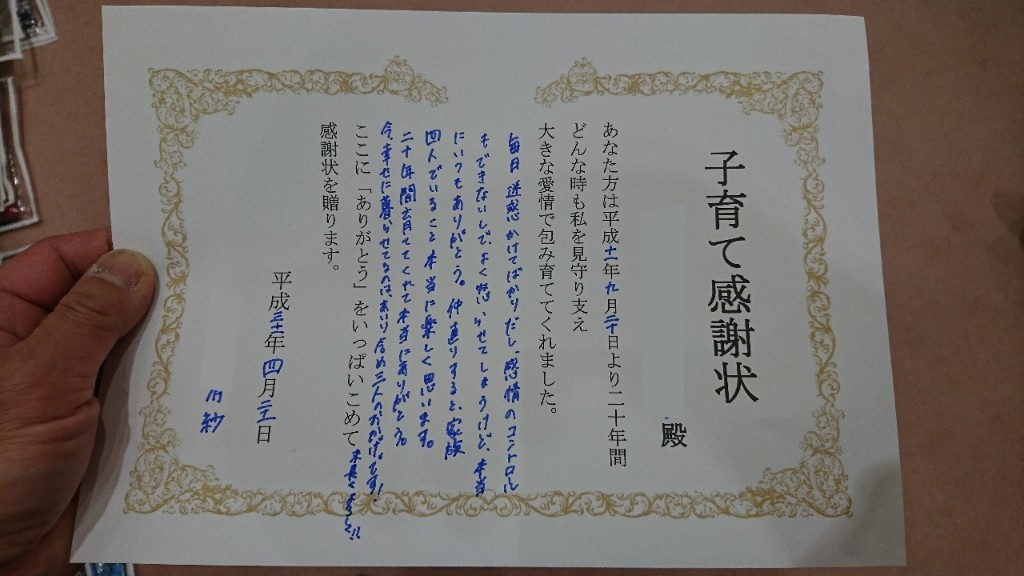 子育て感謝状
殿
あなた方は平成十一年九月二十日より二十年間
どんな時も私を見守り支え
大きな愛情で包み育ててくれました。
毎日迷惑かけてばかりだし、感情のコントロール
もできないしで、よく怒らせてしまうけど、本当
にいつもありがとう。仲直りすると、家族
四人でいること本当に楽しく思います。
二十年間育ててくれて本当にありがとう。
今、幸せに暮らせてるのは
ここに「ありがとう」をいっぱいこめて
感謝状を贈ります。
平成三十一年四月二十一日